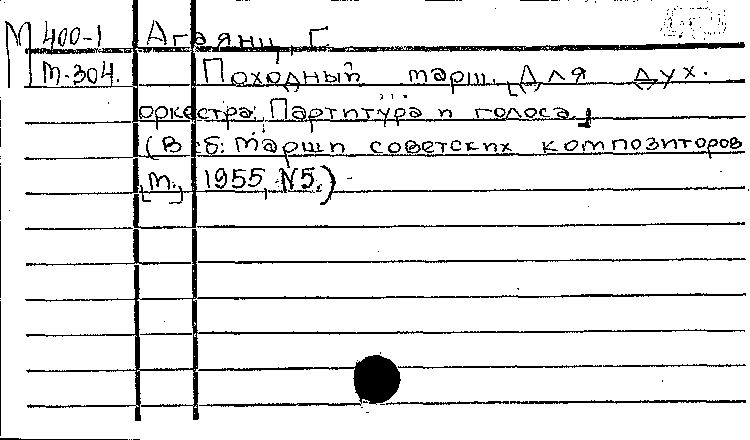 М 400-1 Агаянц, Г.
М-304. Походный марш. [Для дух.
оркестра. Партитура и голоса.]
(В сб: Марши советских композиторов
[М.] 1955, №5.)